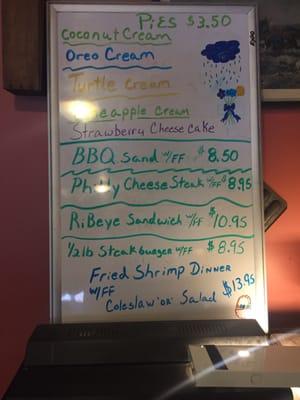 PiES $3.50
Coconut Cream
Oreo Cream
Turtle Cream
Pineapple Cream
Strawberry Cheese Cake
BBQ Sand w/FF $8.50
Philly Cheese Steak w/FF $8.95
RiBeye Sandwich w/FF $10.95
1/2lb Steakburger w/FF $8.95
Fried Shrimp Dinner
w/FF $13.95
Coleslaw "or" Salad